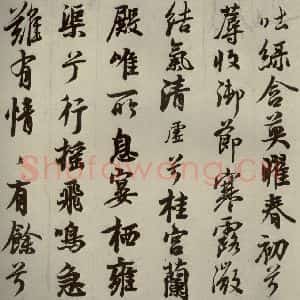 吐綠含英曜春初兮
蓐收御節寒露微
結氣清虛兮桂宮蘭
殿唯所息宴栖雍
渠兮行搖飛鳴急
難有情〻有餘兮
Shufawang.cn